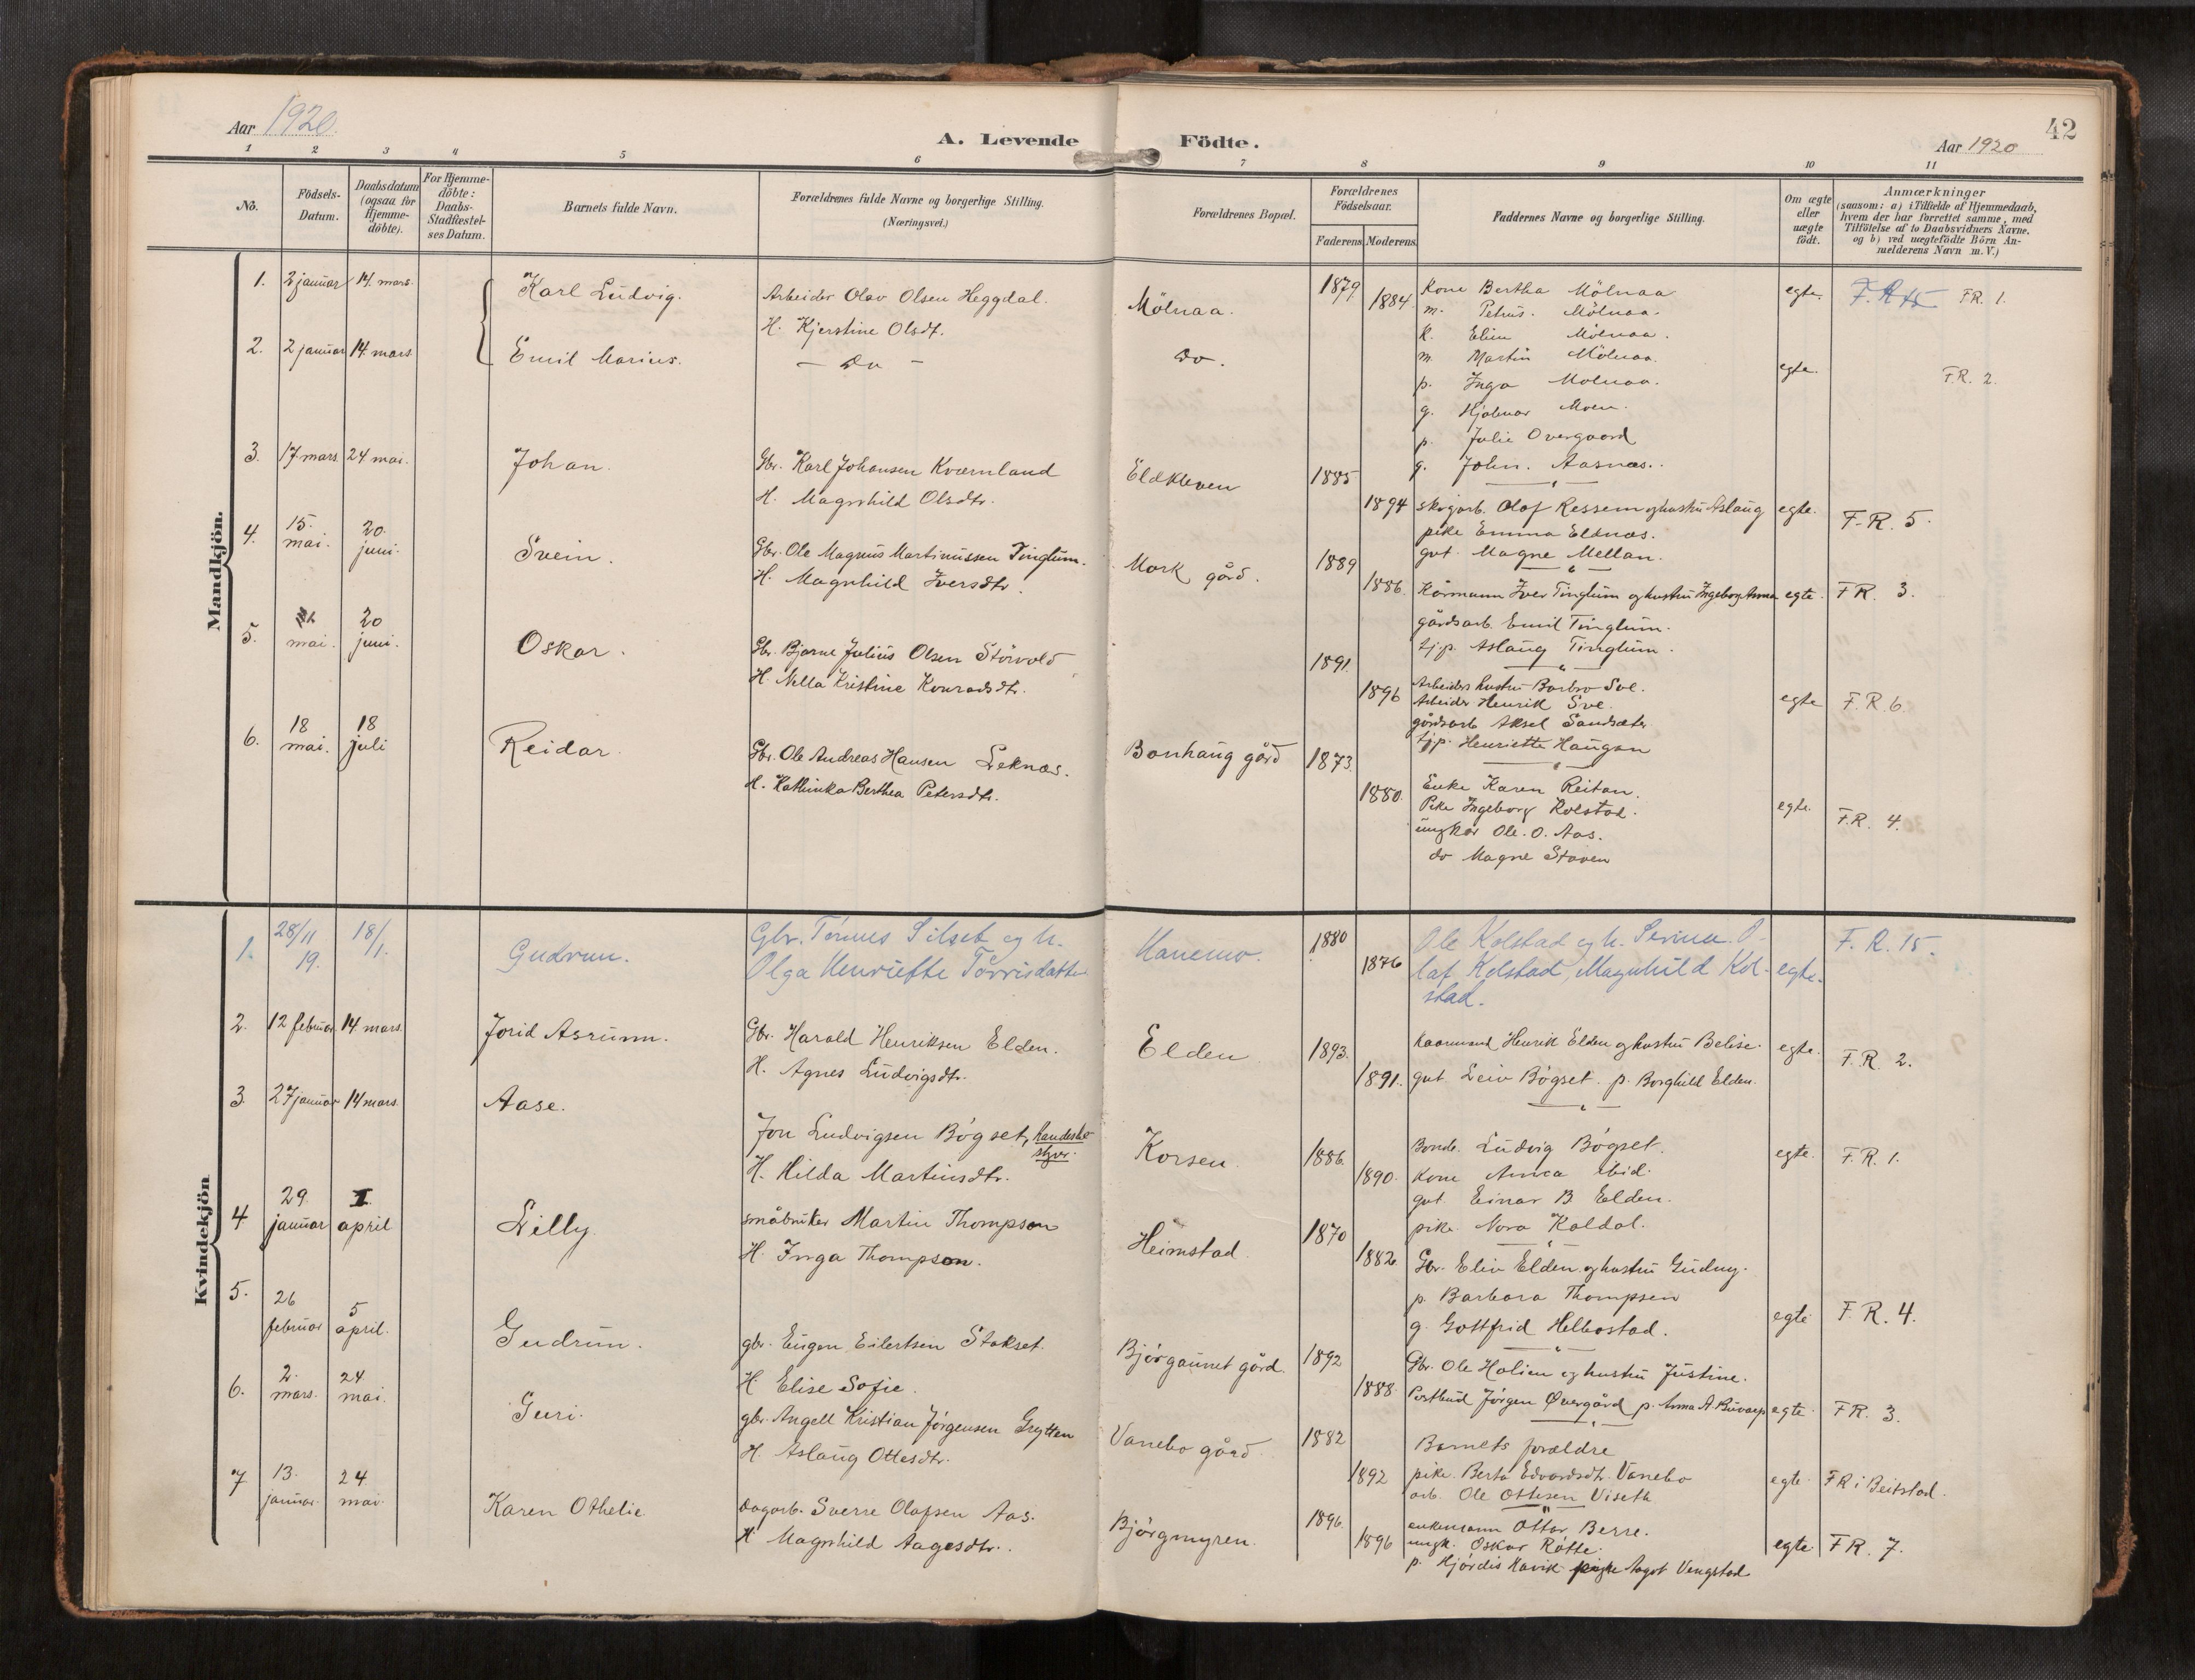 Aar 1920.
A. Levende Födte.
42
Aar 1920
1 2 3 4 5 6 7 8 9 10 11
No.
Födsels-Datum.
Daabsdatum (ogsaa for Hjemme-döbte).
For Hjemme-döbte: Daabs-Stadfæstel-ses Datum.
Barnets fulde Navn.
Forældrenes fulde Navne og borgerlige Stilling.
(Næringsvei.)
Forældrenes Bopæl.
Forældrenes Födselsaar.
Faderens Moderens.
Faddernes Navne og borgerlige Stilling.
Om ægte eller uægte födt.
Anmærkninger
(saasom: a) i Tilfælde af Hjemmedaab, hvem der har forrettet samme, med Tilföielse af to Daabsvidners Navne. og b) ved uægtefödte Börn An-melderens Navn m. V.)
Mandkjön.
1. 2 januar 14. mars. Karl Ludvig. Arbeider Olav Olsen Heggdal.
H. Kjerstine Olsdt.
Mölnaa. 1879 1884.
Kone Bertha Mölnaa
m. Petrus. Mölnaa.
k. Elin Mölnaa.
m. Martin Mölnaa.
egte. F. R. 15 FR. 1.
2. 2 januar 14. mars. Emil Marius. — Do — Do.
p. Inga Mölnaa.
g. Hjalmar Moen.
p. Julie Overgaard
g. John. Aasnæs.
egte. F.R. 2.
3. 17 mars. 24 mai. Johan. Gbr. Karl Johansen Kværnland
H. Magnhild Olsdtr.
Eldkleven 1885 1894
skogarb. Olaf Ressem og hustru Aslaug
pike Emma Eldnæs.
gut. Magne Mellan.
egte. F.R. 5.
4. 15. mai. 20. juni. Svein. Gbr. Ole Magnus Martinussen Tinglum.
H. Magnhild Iversdtr.
Mork gård. 1889 1886.
Kårmann Iver Tinglum og hustru Ingeborg Anna
gårdsarb. Emil Tinglum.
tj.p. Aslaug Tinglum.
egte. FR. 3.
5. mai. 20 juni. Oskar. Gbr. Bjarne Julius Olsen Störvold
H. Nella Kristine Konradsdt.
1891. 1896
Arbeiders hustru Barbro Sve.
Arbeider Henrik Sve.
gårdsarb Aksel Sandsæter
tj.p. Henriette Haugan
egte F.R. 6.
6. 18 mai. 18 juli Reidar. Gbr. Ole Andreas Hansen Leknæs.
H. Kathinka Berthea Petersdt.
Bonhaug gård 1873. 1880.
Enke Karen Reitan.
Pike Ingeborg Kolstad.
ungkar Ole. O. Aas.
do Magne Staven
egte. F.R. 4.
Kvindekjön
1. 28/11 19. 18/1. Gudrun. Gbr. Tönnes Silset og h.
Olga Henriette Torrisdatter
Hanemo. 1880 1876
Ole Kolstad og h. Serina. O-
laf Kolstad, Magnhild Kol-
stad.
egte. F. R. 15.
2. 12 februar. 14 mars. Jorid Asrunn. Gbr. Harald Henriksen Elden.
H. Agnes Ludvigsdt.
Elden 1893. 1891.
Kaarmand Henrik Elden og hustru Belise.
gut Leiv Bögset. p. Borghild Elden.
egte. F.R. 2.
3. 27 januar 14 mars. Aase. Jon Ludvigsen Bögset, handesbestyr.
H. Hilda Martinsdtr.
Korsen 1886. 1890.
Bonde. Ludvig Bögset.
Kone Anna ibid.
gut. Einar B Elden.
pike. Nora Kaldal.
egte. F.R. 1.
4 29. januar I. april Lilly. småbruker Martin Thompson
H. Inga Thompson.
Heimstad. 1870 1882.
Gbr. Eliv Elden og hustru Gudny.
p. Barbara Thompsen
g. Gottfrid Helbostad.
egte F.R. 4.
5. 26 februar 5 april. Gudrun. gbr. Eugen Eilertsen Stokset.
H. Elise Sofie.
Bjørgaunet gård. 1892 1888.
Gbr. Ole Holien og hustru Justine.
Postbud Jörgen Øvergård p. Anna A. Buvarp
egte. FR. 3.
6. 2. mars. 24 mai. Guri. gbr. Angell Kristian Jørgensen Grytten
H. Aslaug Ottesdtr.
Vanebo gård. 1882 1892
Barnets forældre
pike. Berta Edvardsdt. Vanebo
arb. Ole Ottesen Viseth
egte. FR i Beitstad.
7 13. januar. 24. mai. Karen Othelie. Dagarb. Sverre Olafsen Aas.
H Magnhild Aagesdtr.
Bjørgmyren. 1896. 1896
enkemann Ottar Berre.
ungk. Oskar Råtte.
p. Hjördis Havik pike Aagot Vengstad
egte. FR. 7.